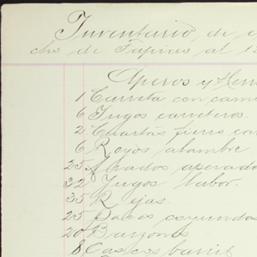 Inventario de
cho de Tapias al 1
Aperos y Herr
1 Carreta con cam
6 Yugos carreteros.
2 Cuartos fierro con
6 Royos alambre
25 Arados aperado
32 Yugos labor.
35 Rejas.
25 Palos coyundas
20 Barzones
8 Cascos barril